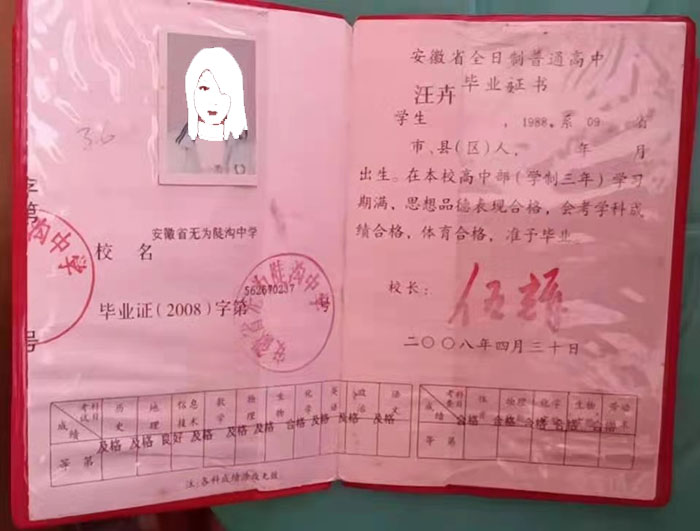 校 名
安徽省无为陡沟中学
562670237
毕业证(2008)字第
号
成绩 考试科目 历史 地理 信息技术 数学 物理 生物 化学 英语 政治 语文
等 第 及格 及格 良好 及格 及格 及格 合格 及格 及格 及格
注:各科成绩涂改无效
安徽省全日制普通高中
毕业证书
汪卉
学生 , 1988. 系 09 省
市、县(区)人, 年 月
出生。在本校高中部(学制三年)学习
期满, 思想品德表现合格, 会考学科成
绩合格, 体育合格, 准予毕业。
校长:
二〇〇八年四月三十日
成绩 考查科目 体育 物理 化学 生物 劳动
等 第 合格 合格 合格 合格 合格